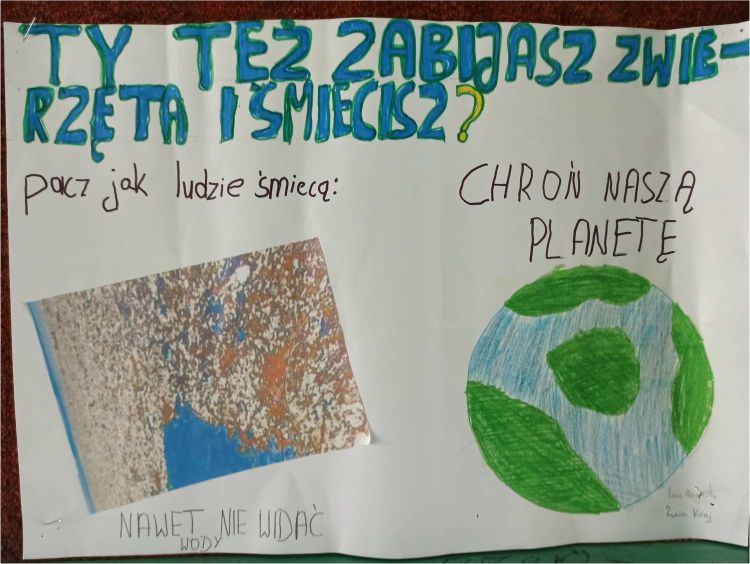 TY TEŻ ZABIJASZ ZWIE-
RZĘTA I ŚMIECISZ?
pacz jak ludzie śmiecą:
CHROŃ NASZĄ
PLANETĘ
NAWET NIE WIDAĆ
WODY